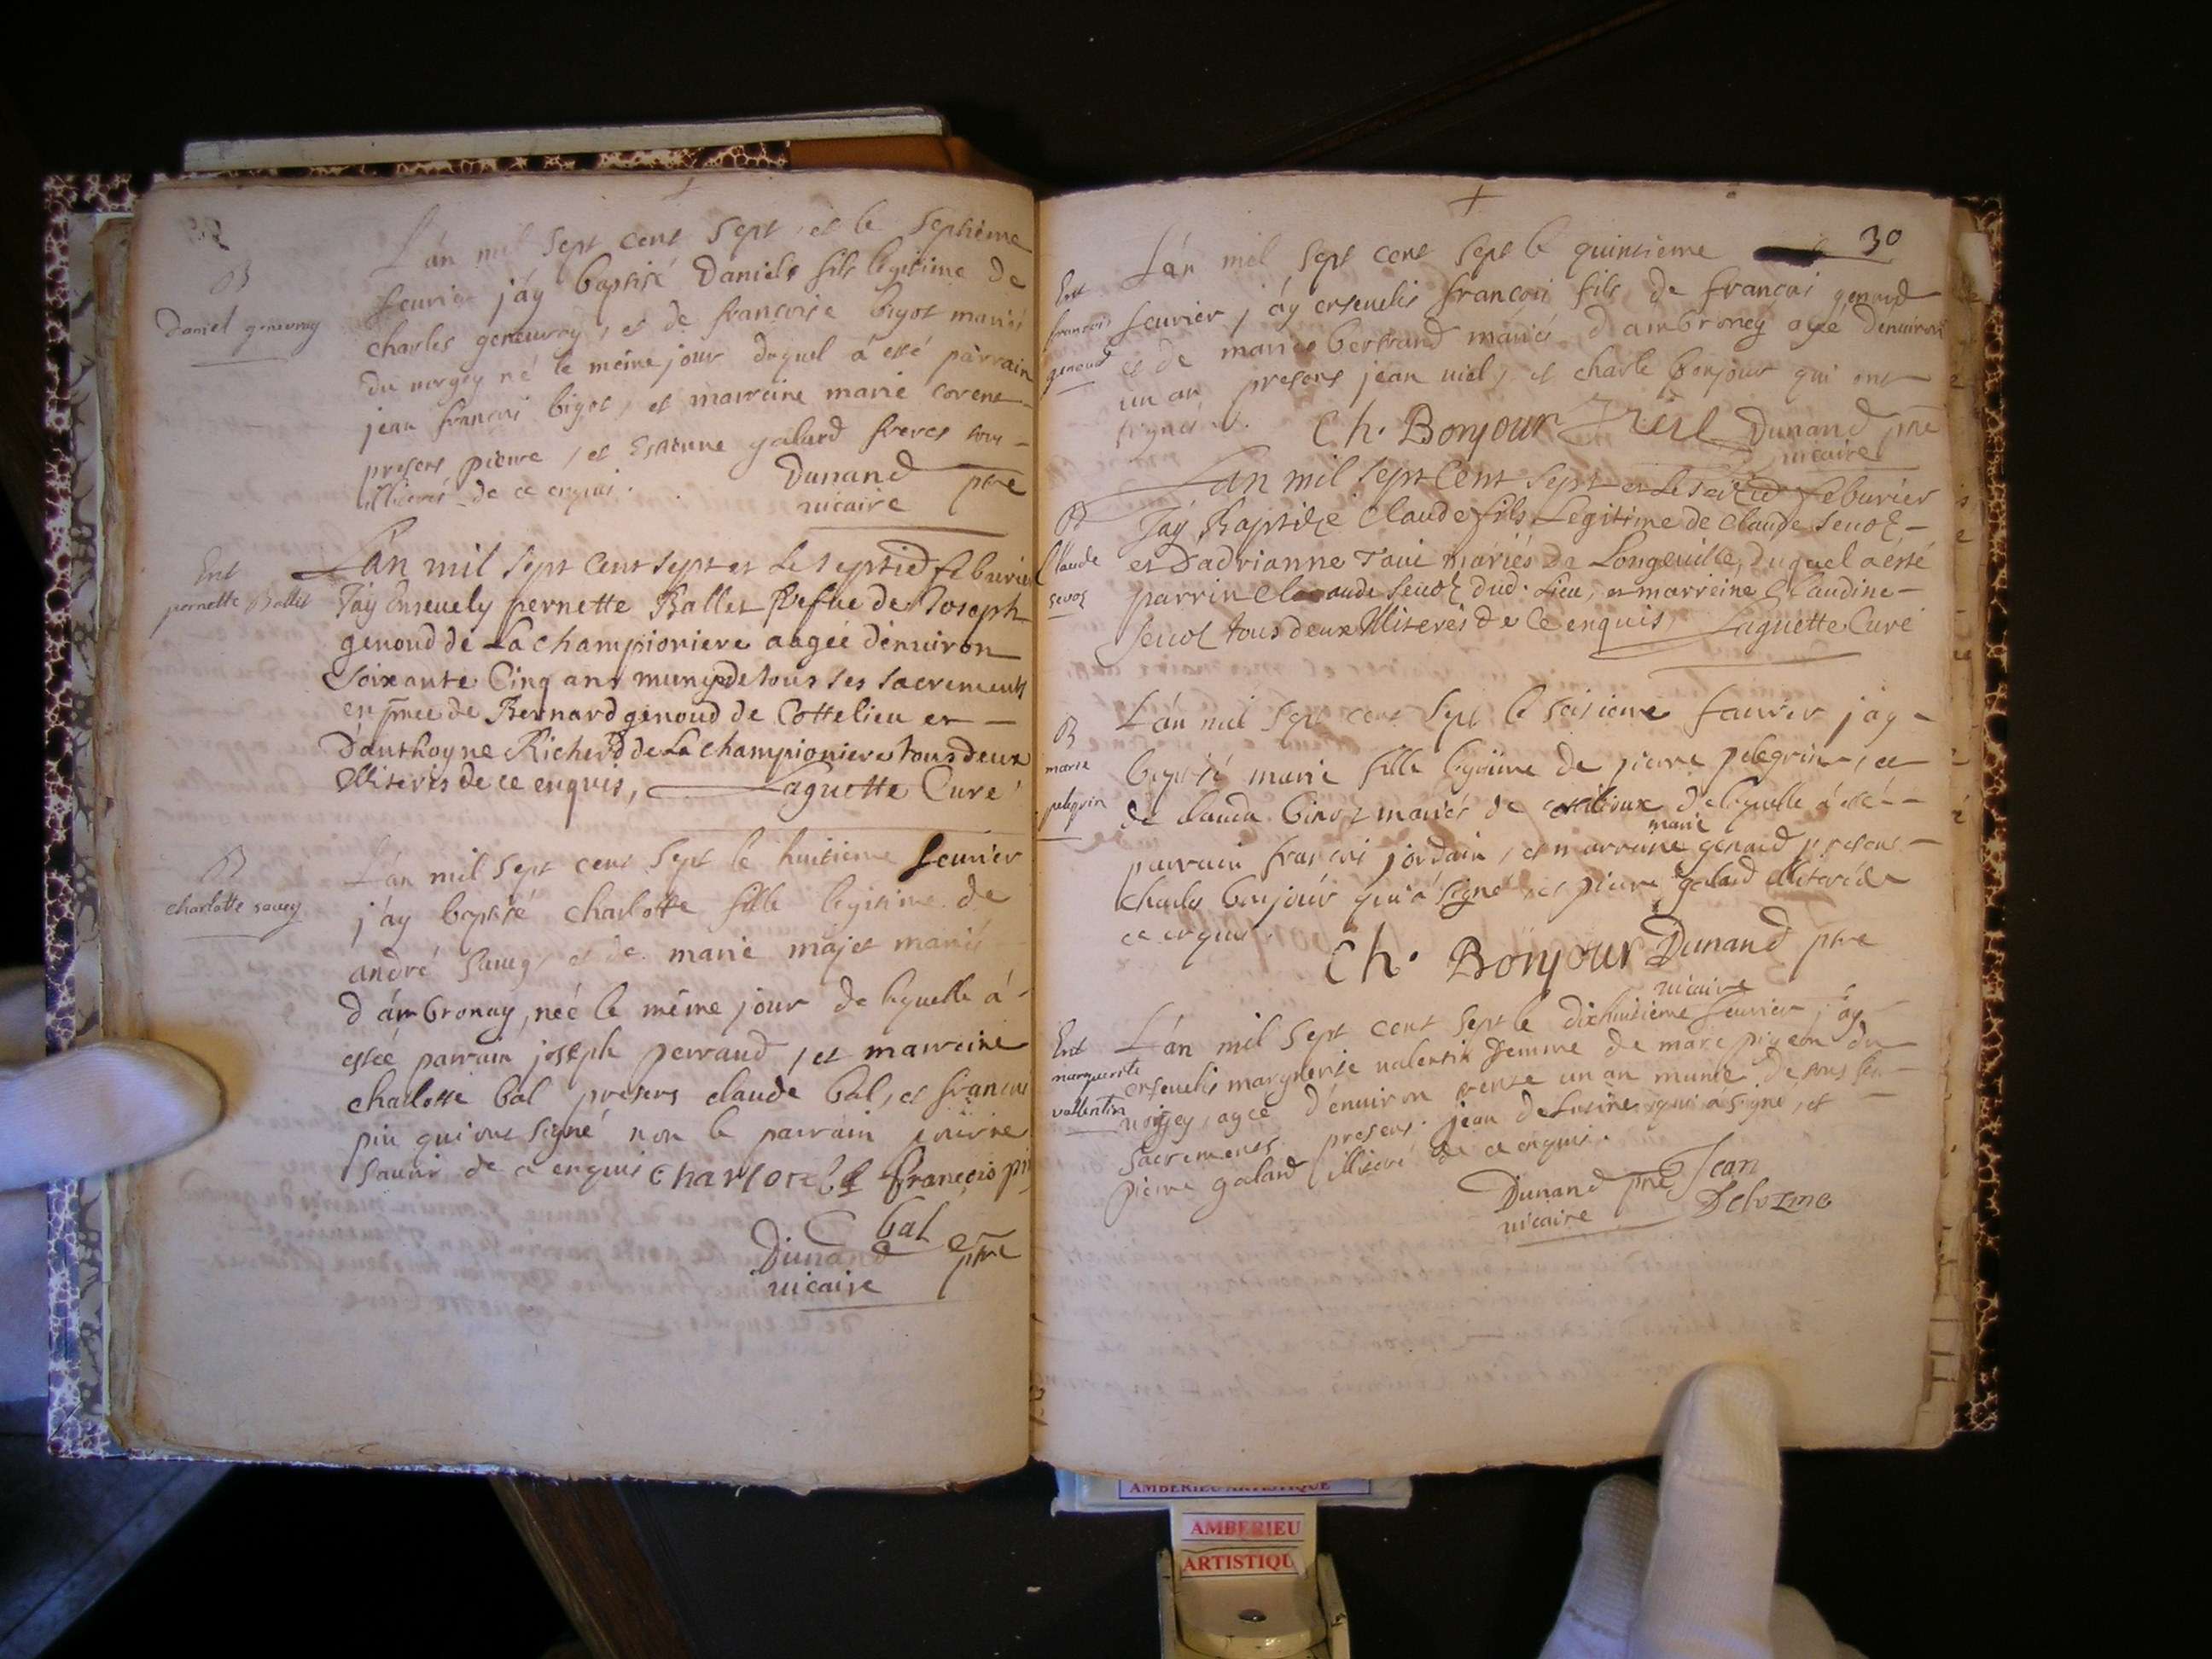 B
Daniel genevray
L'án mil sept cent sept, et le septiéme
feurier j'áy baptisé Daniele fils legitime de
charles geneuvray, et de francoise bigot mariés
du né le méme jour duquel á esté parrain
jean francois bigot, et marreine marie corent
presens pierre, et Estienne galard freres tous
illiterés de ce enquis. Dunand ptre
vicaire
Ent
pernette Ballet
Lan mil sept Cent sept et Le septie feburier
Jay Enseuely pernette Ballet Vefue de Joseph
genoud de La championiere aagée dénuiron
Soixante Cinq ans munye de tous ses sacrements
en pnce de Bernard genoud de Cottelieu et
D'anthoyne Richerd de La championiere tous deux
Illiterés de ce enquis, Laguette Curé
B
charlotte sauey
L'án mil sept cent sept le huitieme feurier
j'áy baptisé charlotte fille legitime de
andré sauey, et de marie majet mariés
d'ámbronay, née le méme jour de laquelle á
estée parrain joseph perraud, et marreine
charlotte bal presens claude bal, et francois
pin qui ont signé non le parrain pour ne
sauoir de ce enquis charlote bal francois pin
bal
Dunand ptre
vicaire
30
Ent
francois
genoud
L'án mil sept cent sept le quinsieme
feurier j'áy enseuelis francois fils de francois genoud
et de marie bertrand mariés d'ambroney agé dénuiron
un an presens jean viel, et charle bonjour qui ont
signés. Ch. Bonjour Viel Dunand ptre
vicaire
B
Claude
sevoz
Lan mil sept Cent sept et Le seizie feburier
Jáy Baptize Claude fils Legitime de Claude Sevoz
et D'adrianne Taui mariés de Longeuille, duquel a ésté
parrin Claude Sevoz dud. Lieu, et marreine Claudine
Sevoz tous deux Illiterés de Ce enquis, Laguette Curé
B
marie
pelegrin
L'án mil sept cent sept le seisieme feurier j'ay
baptisé marie fille legitime de pierre pelegrin, et
de clauda binoz mariés de cottilieux de laquelle á esté
parrain francois jordain, et marreine marie genoud presens
charles bonjour qui á signé et pierre galard illiteré de
ce enquis.
Ch. Bonjour Dunand ptre
vicaire
Ent
marguerite
vallentin
L'án mil sept cent sept le dixhuitieme feurier j'áy
enseuelis marguerite valentin femme de marc pigeon du
agée d'énuiron trente un an munie de tous les
sacremens presens jean delusine, qui á signé, et
pierre galard illiteré de ce enquis.
Dunand ptre Jean
vicaire Delvzine
AMBERIEU ARTISTIQUE
AMBERIEU
ARTISTIQU